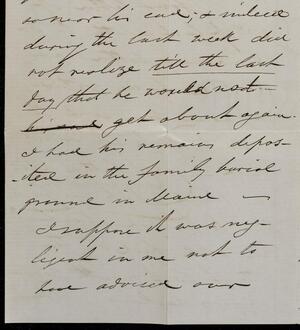 so near his end; & indeed
during the last week did
not realize till the last
day that he would not
get about again.
I had his remains depos-
ited in the family burial
ground in Maine —
I suppose it was neg-
ligent in me not to
have advised our